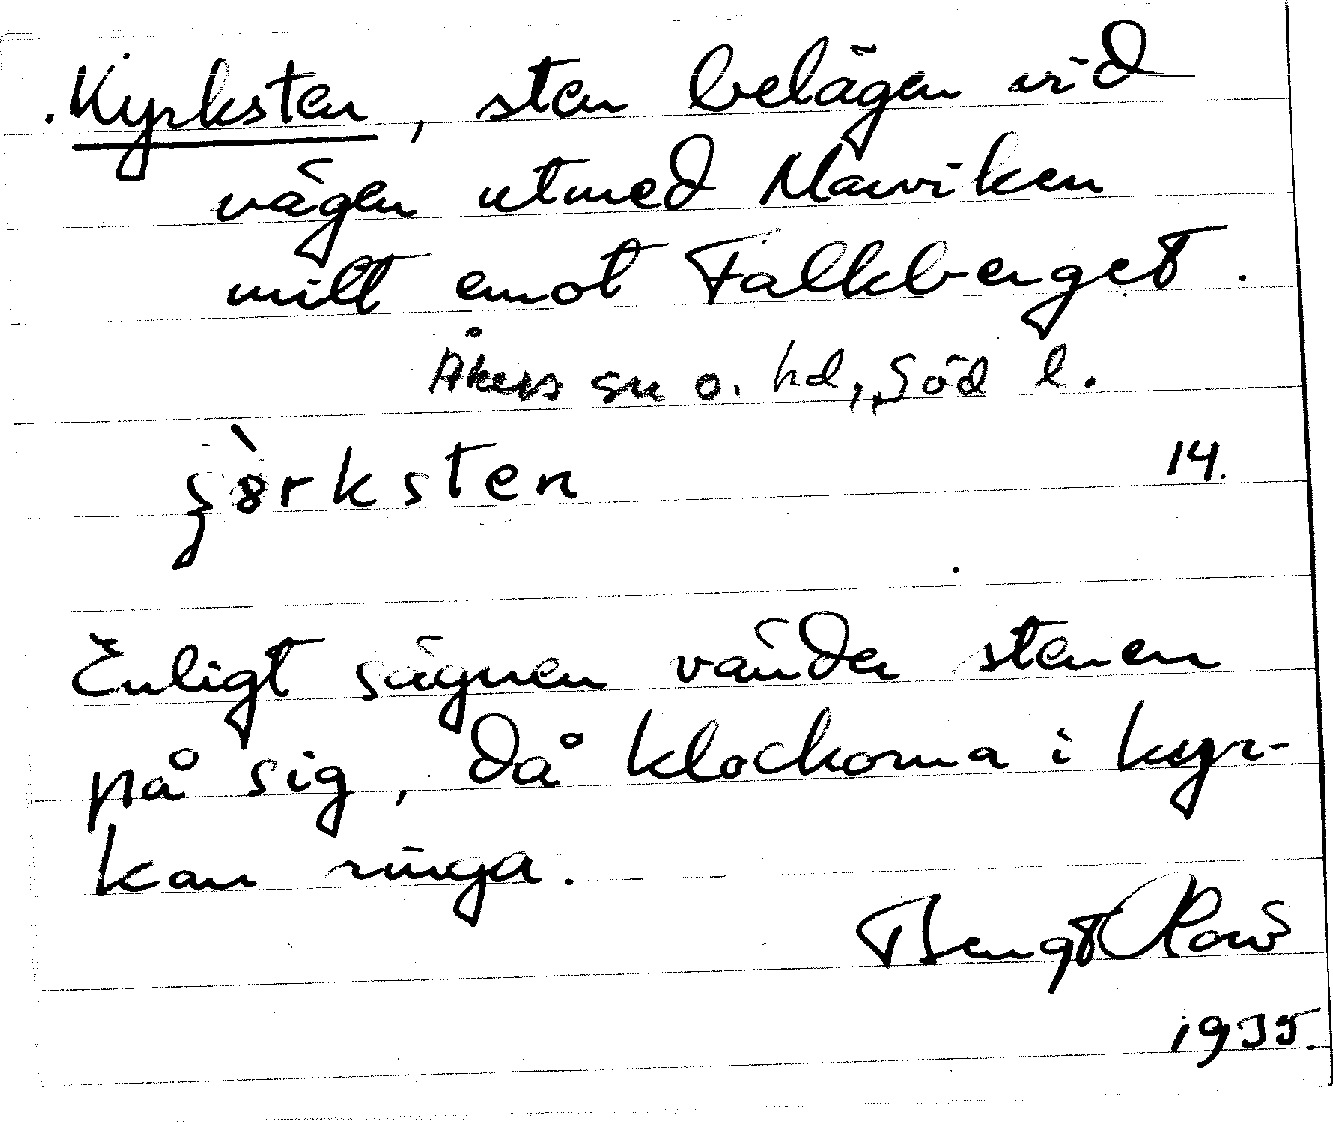 Kyrksten, sten belägen vid
vägen utmed Marviken
mitt emot Falkberget.
Åkers sn o. hd, Söd l.
14.
Enligt sägnen vänder stenen
på sig, då klockorna i kyr-
kan ringa.
Bengt
1935.